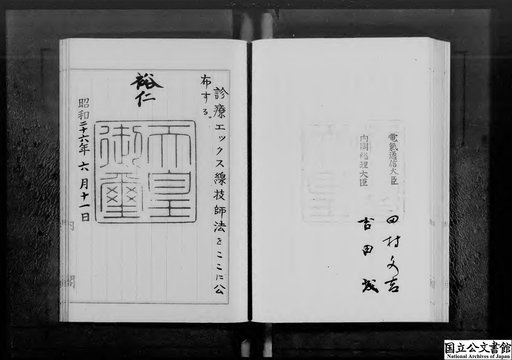 電気通信大臣
田村文吉
内閣総理大臣
吉田茂
診療エックス線技師法をここに公
布する。
裕仁
天皇
御璽
昭和二十六年六月十一日
内閣
国立公文書館
National Archives of Japan